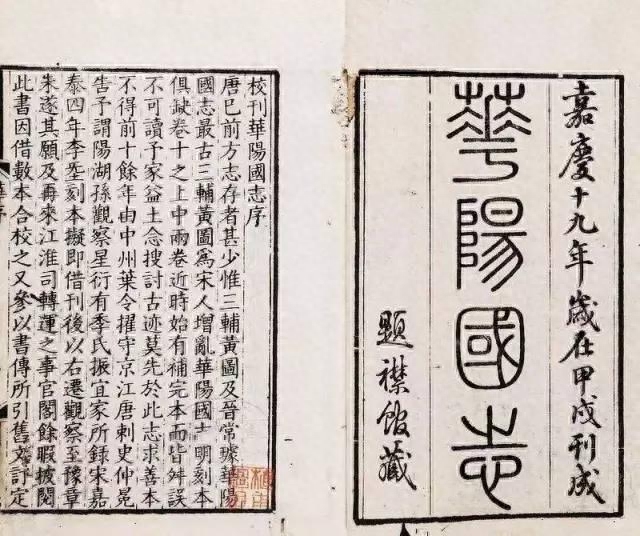 嘉慶十九年歲在甲戌刊成
華陽國志
題襟館藏
校刊華陽國志序
唐已前方志存者甚少惟三輔黃圖及晉常璩華陽
國志最古三輔黃圖爲宋人增亂華陽國志明刻本
俱缺卷十之上中兩卷近時始有補完本而皆舛誤
不可讀予家益土念搜討古迹莫先於此志求善本
不得前十餘年由中州葉令擢守京江唐刺史仲冕
告予謂陽湖孫觀察星衍有季氏振宜家所録宋嘉
泰四年李刻本擬即借刊後以右遷觀察至豫章
未遂其願及再來江淮司轉運之事官閣餘暇披閱
此書因借數本合校之又參以書傳所引舊文詳定